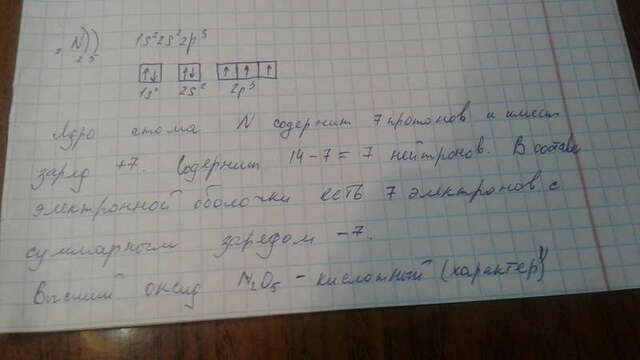 ₇N )) 1s²2s²2p³
2 5
↑↓ ↑↓ ↑ ↑ ↑
1s² 2s² 2p³
Ядро атома N содержит 7 протонов и имеет
заряд +7. Содержит 14-7=7 нейтронов. В составе
электронной оболочки есть 7 электронов с
суммарным зарядом -7.
Высший оксид N₂O₅ - кислотный (характер)